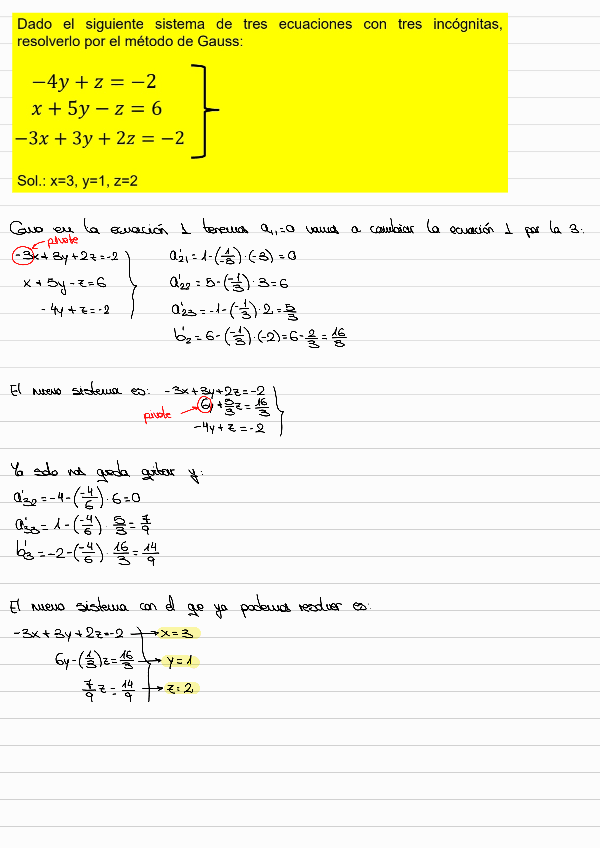 Dado el siguiente sistema de tres ecuaciones con tres incógnitas,
resolverlo por el método de Gauss:
−4y + z = −2
x + 5y − z = 6
−3x + 3y + 2z = −2
Sol.: x=3, y=1, z=2
Como en la ecuación 1 tenemos a₁₁=0 vamos a cambiar la ecuación 1 por la 3:
pivote
-3x+3y+2z=-2
x+5y-z=6
-4y+z=-2
a'₂₁=1-(1/-3)·(-3)=0
a'₂₂=5-(-1/3)·3=6
a'₂₃=-1-(-1/3)·2=5/3
b'₂=6-(-1/3)·(-2)=6-2/3=16/3
El nuevo sistema es: -3x+3y+2z=-2
6y+5/3z=16/3
pivote
-4y+z=-2
Ya solo nos queda quitar y:
a'₃₂=-4-(-4/6)·6=0
a'₃₃=1-(-4/6)·5/3=7/9
b'₃=-2-(-4/6)·16/3=14/9
El nuevo sistema con el qe ya podemos resolver es:
-3x+3y+2z=-2 → x=3
6y-(1/3)z=16/3 → y=1
7/9z=14/9 → z=2